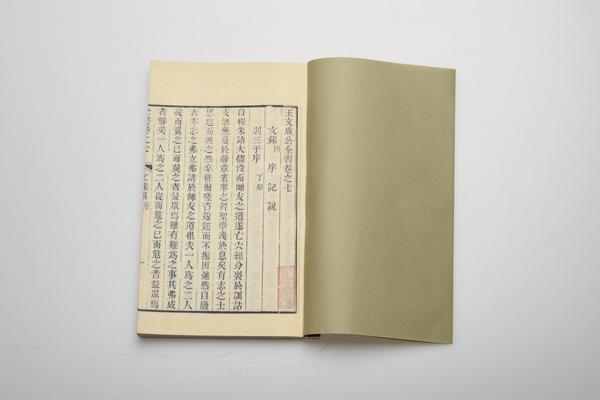 王文成公全書卷之七
文錄四 序 記 說
別三子序 丁卯
自程朱諸大儒沒而師友之道遂亡六經分裂於訓詁
支離蕪蔓於辭章業舉之習聖學幾於息矣有志之士
思起而興之然卒徘徊咨嗟逡巡而不振因弛然自廢
者亦志之弗立弗講於師友之道也夫一人爲之二人
從而翼之已而翼之者益眾焉雖有難爲之事其弗成
者鮮矣一人爲之二人從而危之已而危之者益眾焉